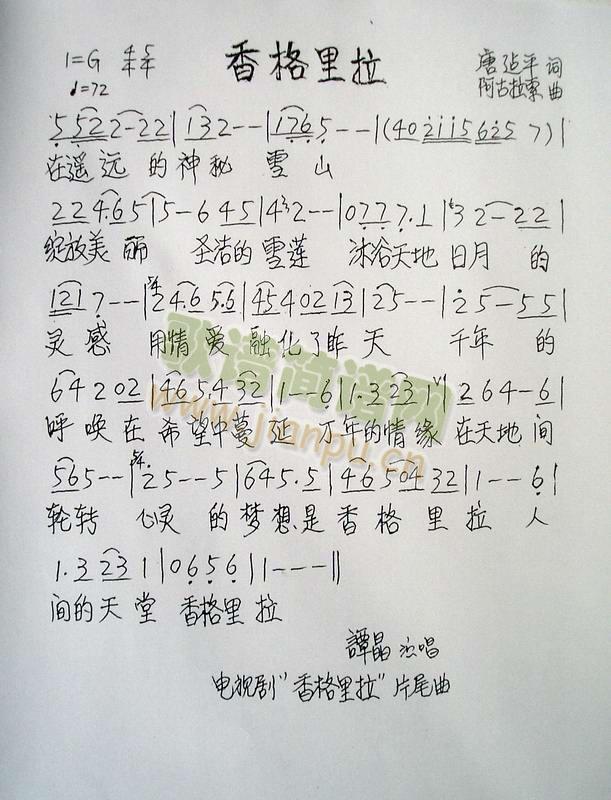 香格里拉
1=G 4/4 5/4
♩=72
唐跃平 词
阿古拉泰 曲
5 5 5 2 2-2 2 | 1 3 2 - - | 1 7 6 5 - - - | (4 0 2 1 1 5 6 2 5 7) |
在遥远 的神秘 雪山
2 2 4.6 5 | 5 - 6 4 5 | 4 3 2 - - | 0 7 7 7. 1 | 3 2 - 2 2 |
绽放美丽 圣洁的雪莲 沐浴天地日月 的
1 2 1 7 - - | 2 4.6 5.6 | 4 5 4 0 2 1 3 | 2 5 - - | 2 5 - 5 5 |
灵感 用情爱融化了昨天 千年 的
6 4 2 0 2 | 4 6 5.4 3 2 | 1 - - 6 | 1. 3 2 3 1 | 2 6 4 - 6 |
呼唤在希望中蔓延 万年的情缘在天地间
5 6 5 - - | 2 5 - - 5 | 6 4 5. 5 | 4 6 5 0 4 3 2 | 1 - - 6 |
轮转 心灵 的梦想是香格里拉 人
1. 3 2 3 1 | 0 6 5 6 | 1 - - - ‖
间的天堂 香格里拉
譚晶 演唱
电视剧"香格里拉"片尾曲
歌谱简谱网
www.jianpu.cn